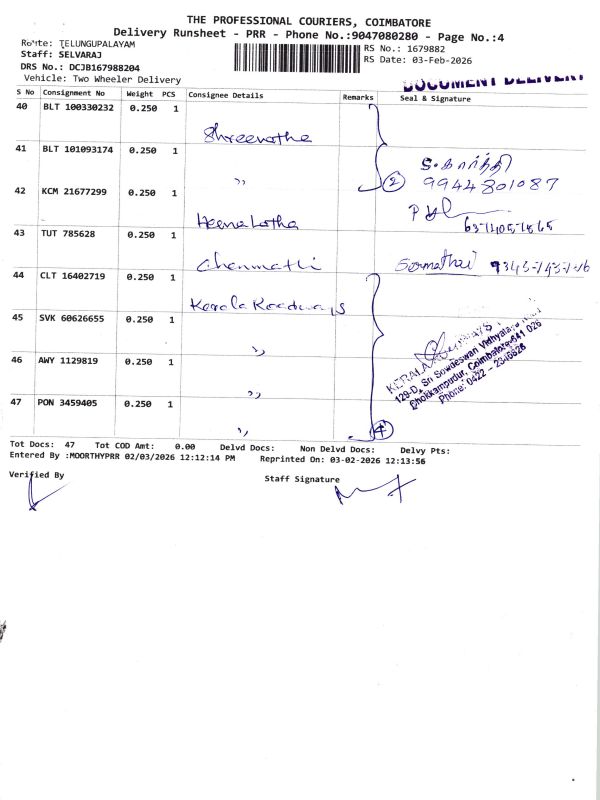 THE PROFESSIONAL COURIERS, COIMBATORE
Delivery Runsheet - PRR - Phone No.:9047080280 - Page No.:4
Route: TELUNGUPALAYAM
Staff: SELVARAJ
DRS No.: DCJB167988204
Vehicle: Two Wheeler Delivery
RS No.: 1679882
RS Date: 03-Feb-2026
DOCUMENT DELIVERY
S No Consignment No Weight PCS Consignee Details Remarks Seal & Signature
40 BLT 100330232 0.250 1 Shreenatha
41 BLT 101093174 0.250 1 ,,
② S. கார்த்தி
9944801087
42 KCM 21677299 0.250 1 Heena Latha
43 TUT 785628 0.250 1 Chanmathi
44 CLT 16402719 0.250 1 Kerala Roadways
45 SVK 60626655 0.250 1 ,,
46 AWY 1129819 0.250 1 ,,
47 PON 3459405 0.250 1 ,,
④
129-D, Sri Sowdeswari Vidhyalaya
Chokkampudur, Coimbatore-641 026
Phone: 0422 - 2346826
Tot Docs: 47 Tot COD Amt: 0.00 Delvd Docs: Non Delvd Docs: Delvy Pts:
Entered By :MOORTHYPRR 02/03/2026 12:12:14 PM Reprinted On: 03-02-2026 12:13:56
Verified By
Staff Signature